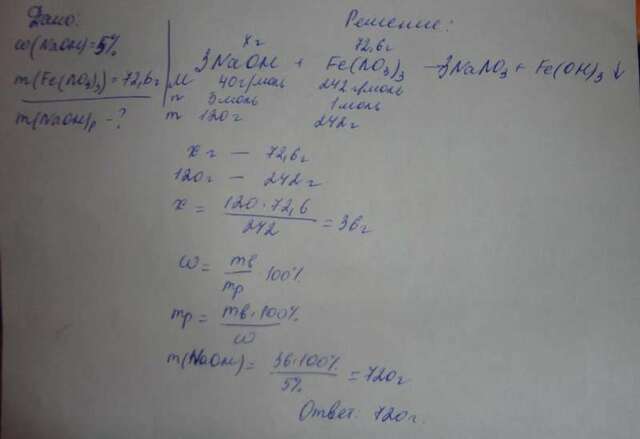 Дано:
Решение:
ω(NaOH)=5%
m(Fe(NO3)3)=72,6г
m(NaOH)р - ?
xг 72,6г
3NaOH + Fe(NO3)3 → 3NaNO3 + Fe(OH)3↓
M 40г/моль 242г/моль
n 3моль 1моль
m 120г 242г
xг — 72,6г
120г — 242г
x = 120·72,6 / 242 = 36г
ω = mв / mр · 100%
mр = mв·100% / ω
m(NaOH) = 36·100% / 5% = 720г
Ответ: 720г.